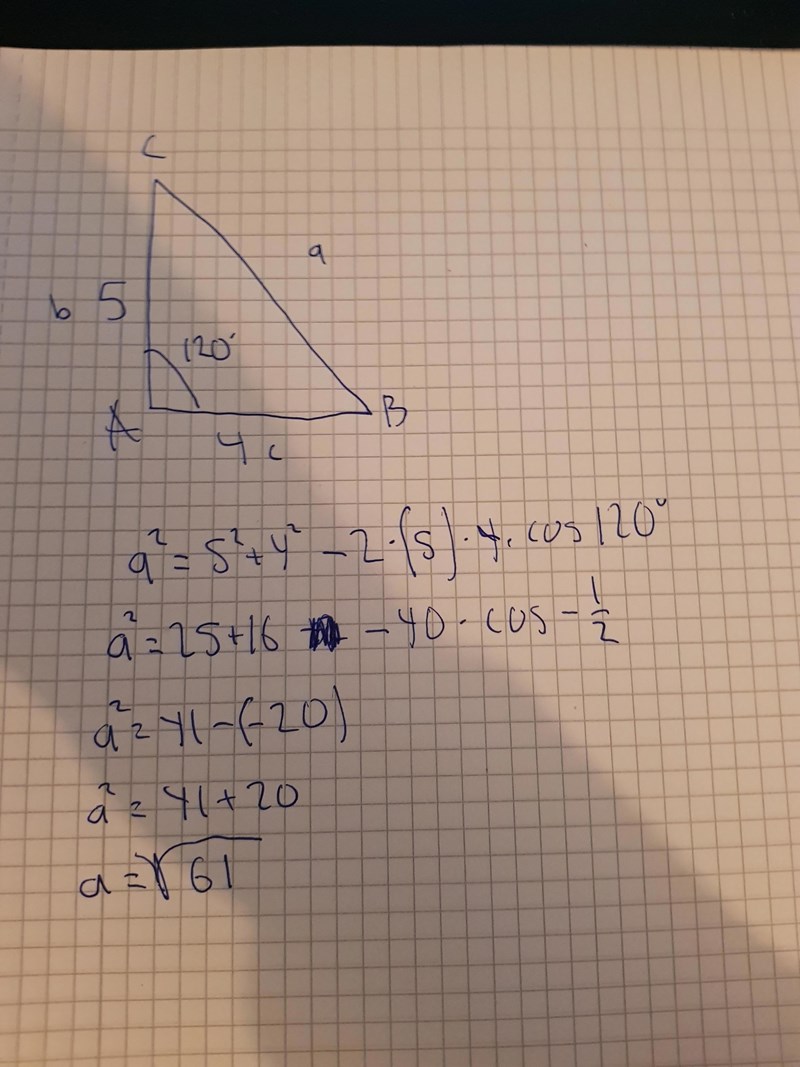 C
a
b 5
120°
A
B
4 c
a² = 5² + 4² - 2 · (5) · 4 · cos 120°
a² = 25 + 16 - 40 · cos - 1/2
a² = 41 - (-20)
a² = 41 + 20
a = √61